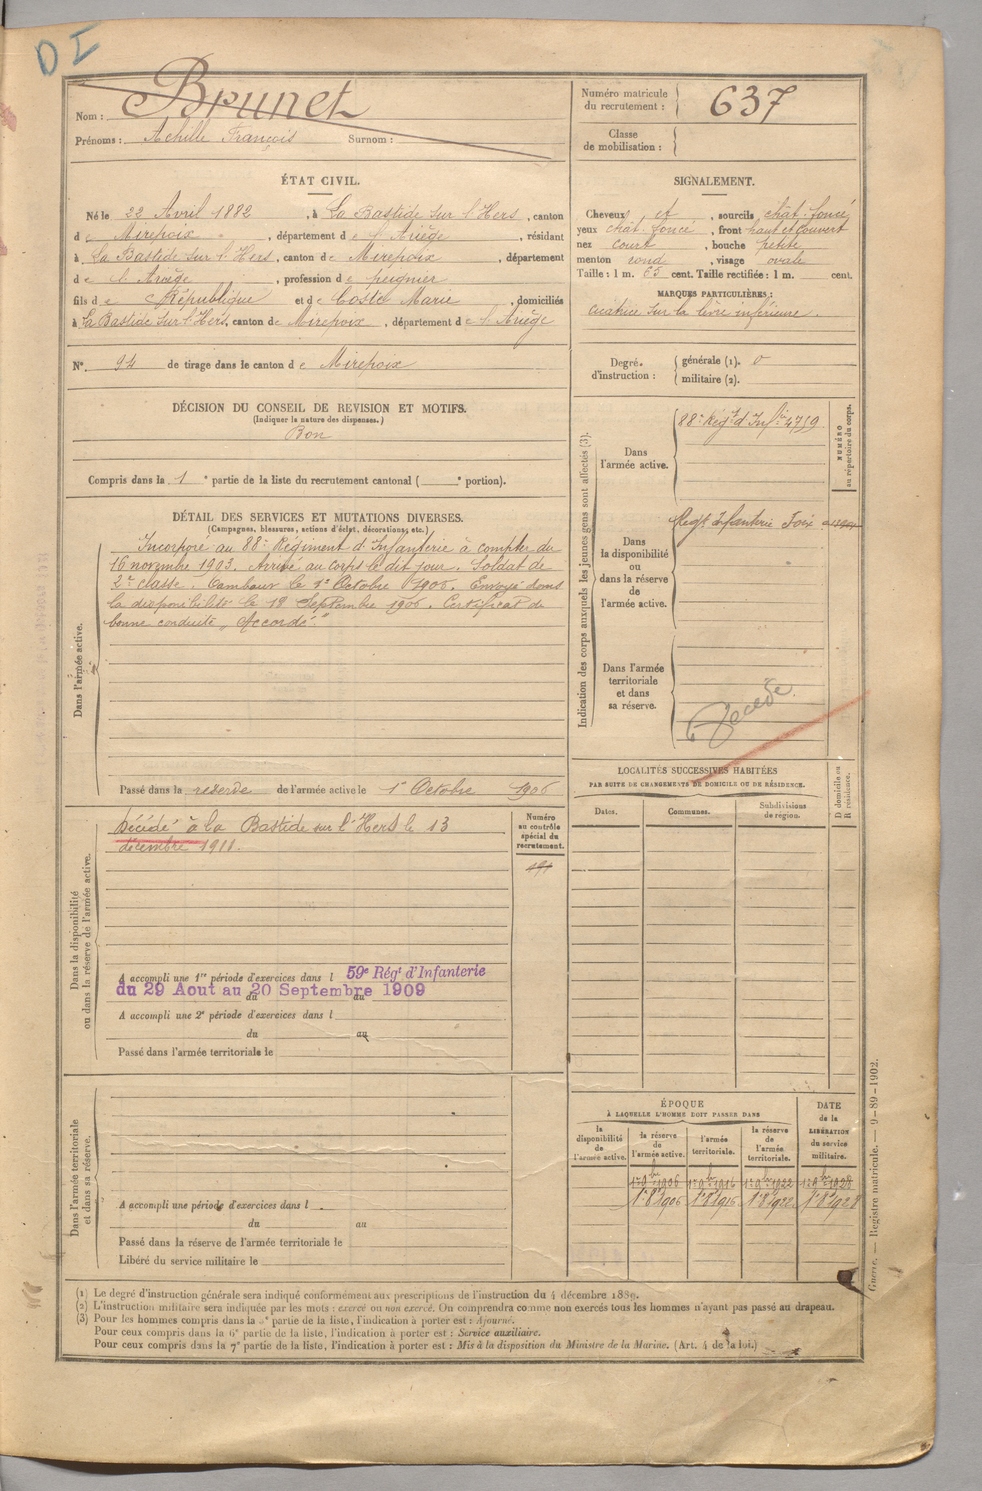 DI
Nom : Brunet
Prénoms : Achille François Surnom :
Numéro matricule du recrutement : 637
Classe de mobilisation :
ÉTAT CIVIL.
Né le 22 Avril 1882, à La Bastide sur l'Hers, canton
de Mirepoix, département de l'Ariège, résidant
à La Bastide sur l'Hers, canton de Mirepoix, département
de l'Ariège, profession de peignier
fils de République et de Coste Marie, domiciliés
à La Bastide sur l'Hers, canton de Mirepoix, département de l'Ariège
SIGNALEMENT.
Cheveux et, sourcils chât. foncé
yeux chât. foncé, front haut et couvert
nez court, bouche petite
menton rond, visage ovale
Taille : 1 m. 65 cent. Taille rectifiée : 1 m. cent.
MARQUES PARTICULIÈRES :
cicatrice sur la lèvre inférieure.
N° 94 de tirage dans le canton de Mirepoix
Degré d'instruction : générale (1). 0
militaire (2).
DÉCISION DU CONSEIL DE REVISION ET MOTIFS.
(Indiquer la nature des dispenses.)
Bon
Compris dans la 1e partie de la liste du recrutement cantonal ( e portion).
DÉTAIL DES SERVICES ET MUTATIONS DIVERSES.
(Campagnes, blessures, actions d'éclat, décorations, etc.)
Dans l'armée active.
Incorporé au 88e Régiment d'Infanterie à compter du
16 novembre 1903. Arrivé au corps le dit jour. Soldat de
2e classe. Tambour le 1er Octobre 1905. Envoyé dans
la disponibilité le 18 Septembre 1906. Certificat de
bonne conduite „Accordé."
Passé dans la réserve de l'armée active le 1er Octobre 1906
Indication des corps auxquels les jeunes gens sont affectés (3).
NUMÉRO au répertoire du corps.
Dans l'armée active.
88e Régt d'Infie 4759
Dans la disponibilité ou dans la réserve de l'armée active.
Régt Infanterie Foix
Dans l'armée territoriale et dans sa réserve.
Décédé
Dans la disponibilité ou dans la réserve de l'armée active.
Décédé à la Bastide sur l'Hers le 13
décembre 1911.
Numéro au contrôle spécial du recrutement.
A accompli une 1re période d'exercices dans l 59e Régt d'Infanterie
du 29 Aout au 20 Septembre 1909
du au
A accompli une 2e période d'exercices dans l
du au
Passé dans l'armée territoriale le
LOCALITÉS SUCCESSIVES HABITÉES
PAR SUITE DE CHANGEMENTS DE DOMICILE OU DE RÉSIDENCE.
D domicile ou R résidence.
Dates. Communes. Subdivisions de région.
Dans l'armée territoriale et dans sa réserve.
A accompli une période d'exercices dans l
du au
Passé dans la réserve de l'armée territoriale le
Libéré du service militaire le
ÉPOQUE
À LAQUELLE L'HOMME DOIT PASSER DANS
DATE de la LIBÉRATION du service militaire.
la disponibilité de l'armée active.
la réserve de l'armée active.
l'armée territoriale.
la réserve de l'armée territoriale.
1er 9bre 1906 1er 9bre 1916 1er 9bre 1922 1er 9bre 1928
1er 8bre 1906 1er 8bre 1916 1er 8bre 1922 1er 8bre 1928
Guerre. — Registre matricule. — 9-89-1902.
(1) Le degré d'instruction générale sera indiqué conformément aux prescriptions de l'instruction du 4 décembre 1889.
(2) L'instruction militaire sera indiquée par les mots : exercé ou non exercé. On comprendra comme non exercés tous les hommes n'ayant pas passé au drapeau.
(3) Pour les hommes compris dans la partie de la liste, l'indication à porter est : Ajourné.
Pour ceux compris dans la 6e partie de la liste, l'indication à porter est : Service auxiliaire.
Pour ceux compris dans la 7e partie de la liste, l'indication à porter est : Mis à la disposition du Ministre de la Marine. (Art. 4 de la loi.)